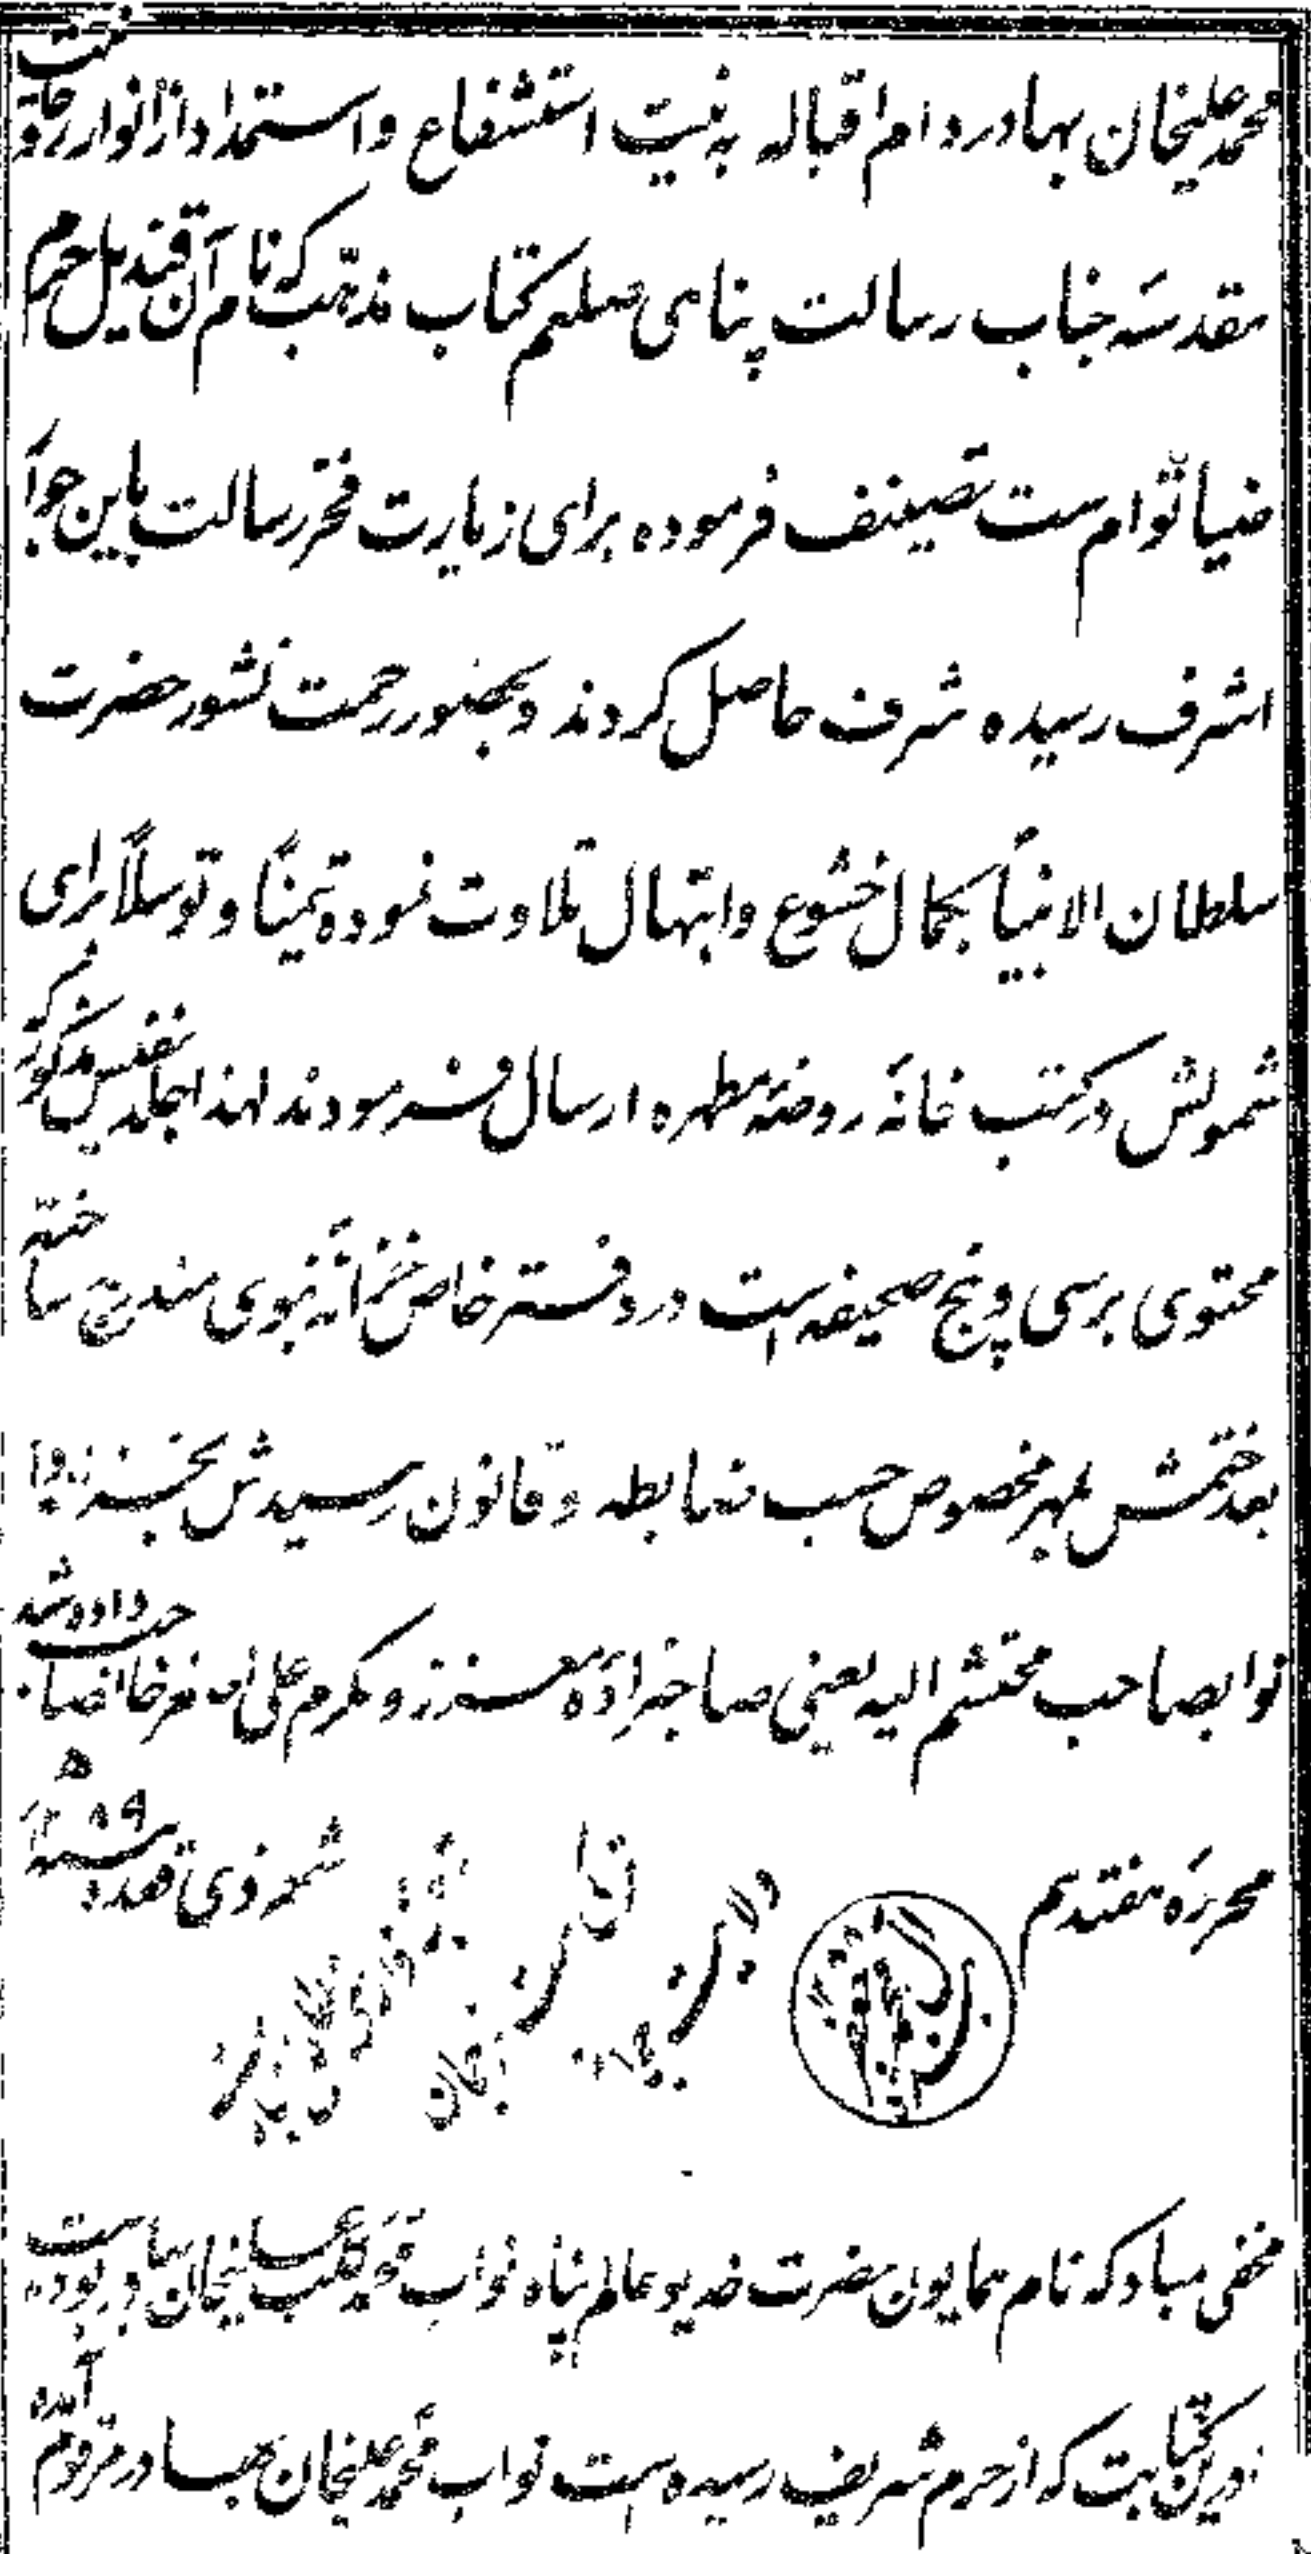 محمد علیخان بہادر دام اقبالہ بہ نیت استشفاع و استمداد از انوار روحانیت
مقدسہ جناب رسالت پناہی صلعم کتاب مذہّب کہ نام آن قندیل حرم
ضیا توام ست تصنیف فرمودہ برای زیارت فخر رسالت باین جوار
اشرف رسیدہ شرف حاصل کردند و بحضور رحمت نشور حضرت
سلطان الانبیآ بکمال خشوع و ابتہال تلاوت نمودہ تیمناً و توسلاً برای
شمولش در کتب خانہٴ روضہٴ مطہرہ ارسال فرمودند لہذا جلد نفیس مذکور کہ
محتوی بر سی و پنج صحیفہ است در دفتر خاص خزانہٴ نبوی مندرج ساختہ
بعد ختمش بمہر مخصوص حسب ضابطہ و قانون رسیدش
نوابصاحب محتشم الیہ یعنی صاحبزادہٴ معزز و مکرم علی اصغر خانصاحب دادہ شد
محررہٴ ہفتدہم شہر ذی قعدہ سنہ ۱۲۸۹ ھ
مخفی مباد کہ نام ہمایون حضرت خدیو عالم پناہ نواب محمد کلب علیخان بہادر بودہ ست
درین کتابت کہ از حرم شریف رسیدہ است نواب محمد علیخان بہادر مرقوم آمدہ